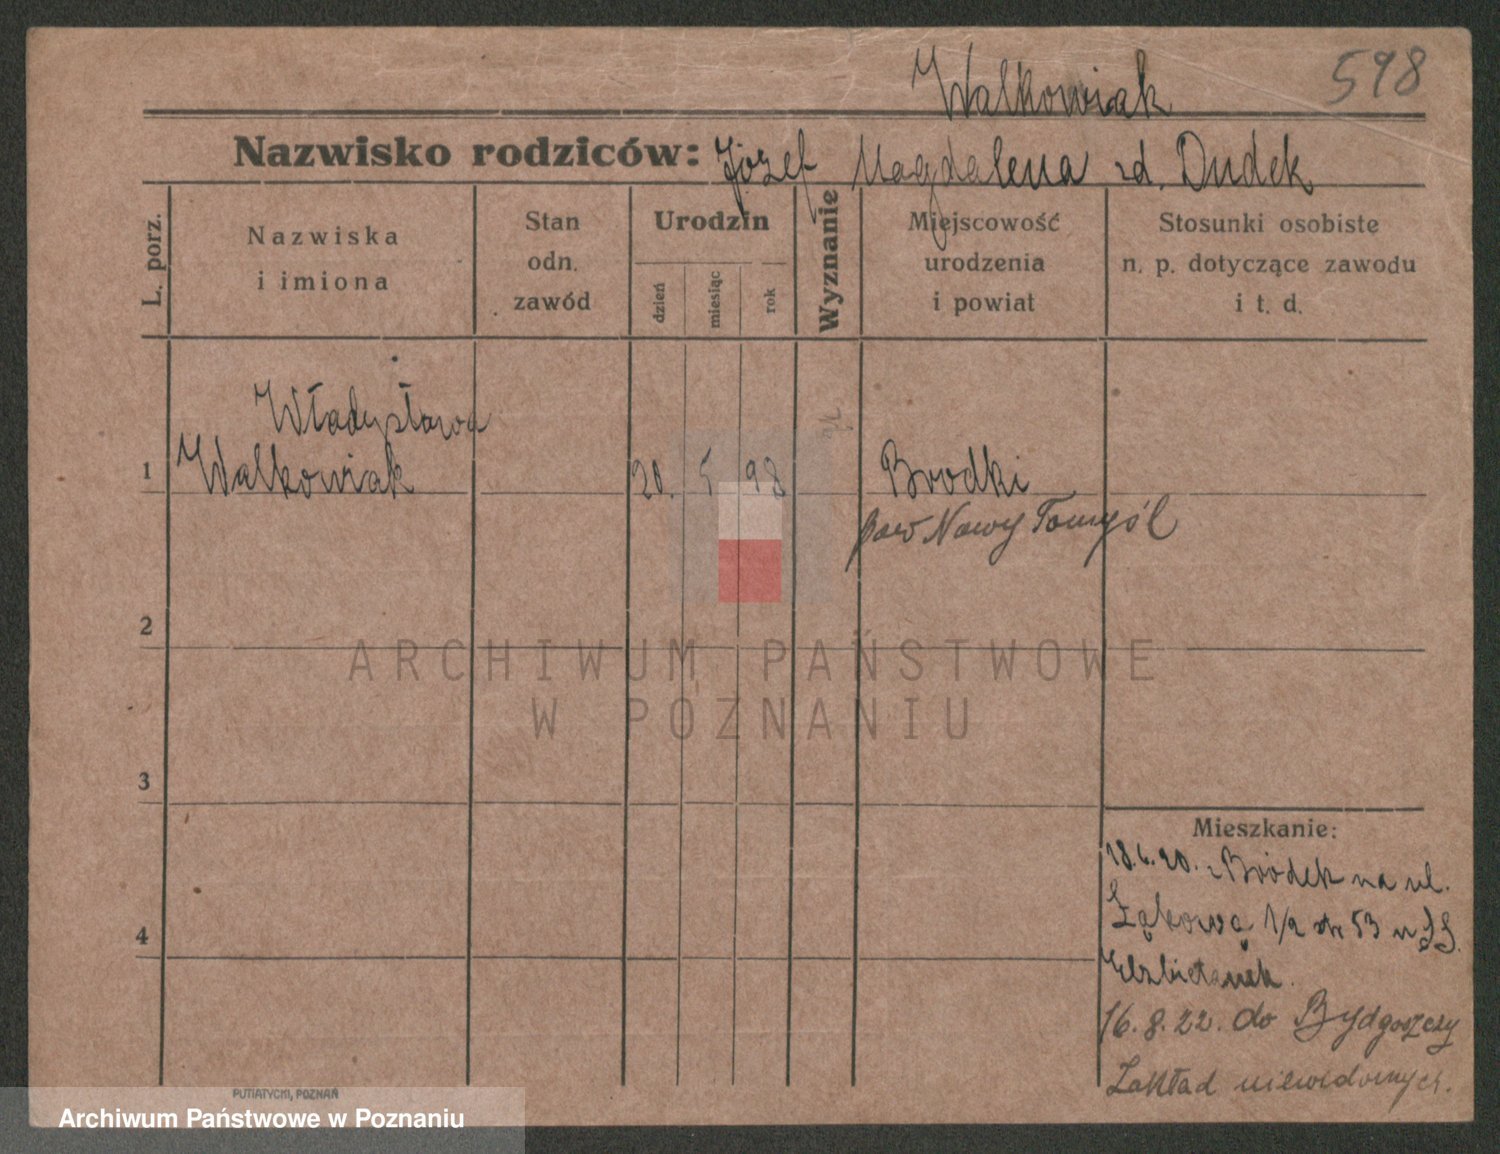 598
Walkowiak
Nazwisko rodziców: Józef Magdalena zd. Dudek
L. porz.
Nazwiska
i imiona
Stan
odn.
zawód
Urodzin
dzień
miesiąc
rok
Wyznanie
Miejscowość
urodzenia
i powiat
Stosunki osobiste
n. p. dotyczące zawodu
i t. d.
Władysława
1 Walkowiak 20. 5 98 Brodki
pow Nowy Tomyśl
2
3
4
Mieszkanie:
18.6.20. z Bródek na ul.
Łąkową 1/2 53 u SS.
Elżbietanek.
16.8.22. do Bydgoszczy
Zakład niewidomych.
PUTIATYCKI, POZNAŃ
ARCHIWUM PAŃSTWOWE
W POZNANIU
Archiwum Państwowe w Poznaniu